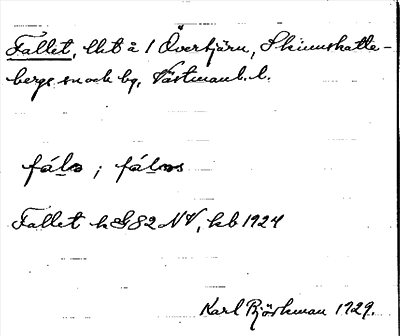 Fallet, lht å 1 Övertjärn, Skinnskatte-
bergs sn och bg, Västmanl. l.
fálɘ ; fálɘs
Fallet hG82NV, kb 1924
Karl Björkman 1929.